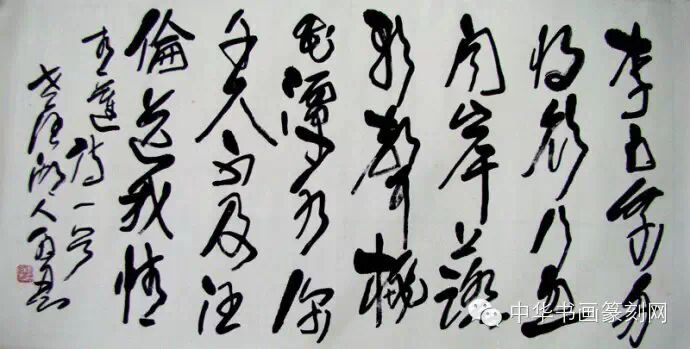 李白乘舟
將欲行忽
聞岸上踏
歌聲桃
花潭水深
千尺不及汪
倫送我情
青蓮詩一首
中华书画篆刻网